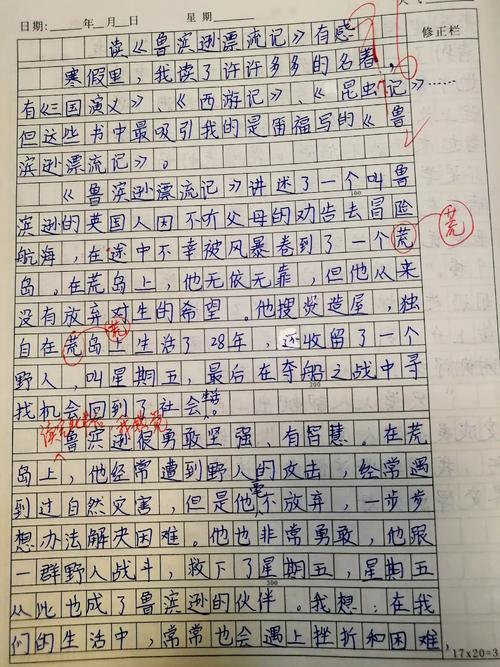 日期:____年__月__日 星期____
修正栏
读《鲁滨逊漂流记》有感
寒假里,我读了许许多多的名著,
有《三国演义》、《西游记》、《昆虫记》……
但这些书中最吸引我的是雷福写的《鲁
滨逊漂流记》。
《鲁滨逊漂流记》讲述了一个叫鲁
100
滨逊的英国人因不听父母的劝告去冒险
航海,在途中不幸被风暴卷到了一个荒
荒
岛。在荒岛上,他无依无靠,但他从来
没有放弃对生的希望。他搜炎造屋,独
荒
自在荒岛上生活了28年,还收留了一个
野人,叫星期五,最后在夺船之战中寻
200
找机会回到了社会
鲁滨逊很勇敢坚强、有智慧。在荒
岛上,他经常遭到野人的攻击,经常遇
到过自然灾害,但是他毫不放弃,一步步
想办法解决困难。他也非常勇敢,他跟
一群野人战斗,救下了星期五,星期五
300
从此也成了鲁滨逊的伙伴。我想:在我
们的生活中,常常也会遇上挫折和困难,
17×20=3